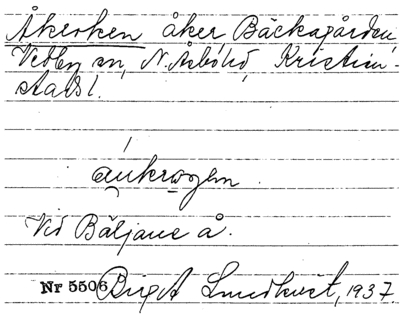 Åkroken åker, Bäckagården
Vedby sn, N. Åsbo hd, Kristian-
stads l.
åukrogen
Vid Bäljane å.
Nr 5506 Birgit Lundkvist, 1937.